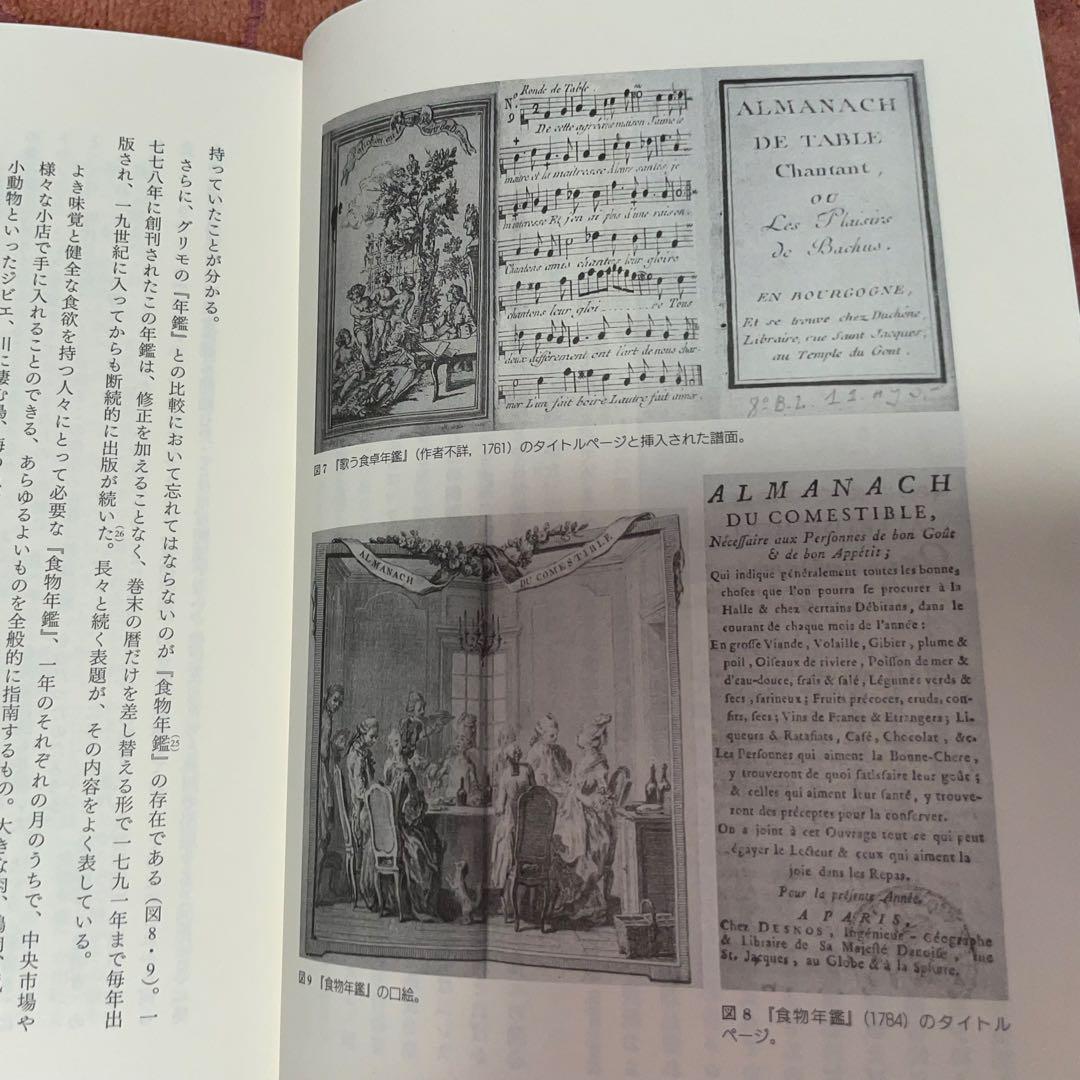 持っていたことが分かる。
さらに、グリモの『年鑑』との比較において忘れてはならないのが『食物年鑑』(25)の存在である(図8・9)。一
七七八年に創刊されたこの年鑑は、修正を加えることなく、巻末の暦だけを差し替える形で一七九一年まで毎年出
版され、一九世紀に入ってからも断続的に出版が続いた。(26)長々と続く表題が、その内容をよく表している。
よき味覚と健全な食欲を持つ人々にとって必要な『食物年鑑』、一年のそれぞれの月のうちで、中央市場や
様々な小店で手に入れることのできる、あらゆるよいものを全般的に指南するもの。大きな肉、
小動物といったジビエ、川に棲む鳥、
Nº
9
Ronde de Table.
De cette agréable maison J'aime le
maire et la maitresse Leurs santés, je
m'interesse Et j'en ai plus d'une raison.
Chantons amis chantons leur gloire
chantons leur gloi re Tous
deux différement ont l'art de nous char-
mer L'un fait boire L'autre fait aimer.
ALMANACH
DE TABLE
Chantant,
OU
Les Plaisirs
de Bachus.
EN BOURGOGNE,
Et se trouve chez Duchéne,
Libraire, rue Saint Jacques,
au Temple du Gout.
図7 『歌う食卓年鑑』(作者不詳, 1761)のタイトルページと挿入された譜面。
ALMANACH
DU COMESTIBLE
図9 『食物年鑑』の口絵。
ALMANACH
DU COMESTIBLE,
Nécessaire aux Personnes de bon Goût
& de bon Appétit;
Qui indique généralement toutes les bonnes
choses que l'on pourra se procurer à la
Halle & chez certains Débitans, dans le
courant de chaque mois de l'année:
En grosse Viande, Volaille, Gibier, plume &
poil, Oiseaux de riviere, Poisson de mer &
d'eau-douce, frais & salé, Légumes verds &
secs, farineux; Fruits précoces, cruds, con-
fits, secs; Vins de France & Etrangers; Li-
queurs & Ratafiats, Café, Chocolat, &c.
Les Personnes qui aiment la Bonne-Chere,
y trouveront de quoi satisfaire leur goût;
& celles qui aiment leur santé, y trouve-
ront des préceptes pour la conserver.
On a joint à cet Ouvrage tout ce qui peut
égayer le Lecteur & ceux qui aiment la
joie dans les Repas.
Pour la présente Année.
A PARIS,
Chez DESNOS, Ingénieur - Géographe
& Libraire de Sa Majesté Danoise, rue
St. Jacques, au Globe & à la Sphere.
図8 『食物年鑑』(1784)のタイトル
ページ。